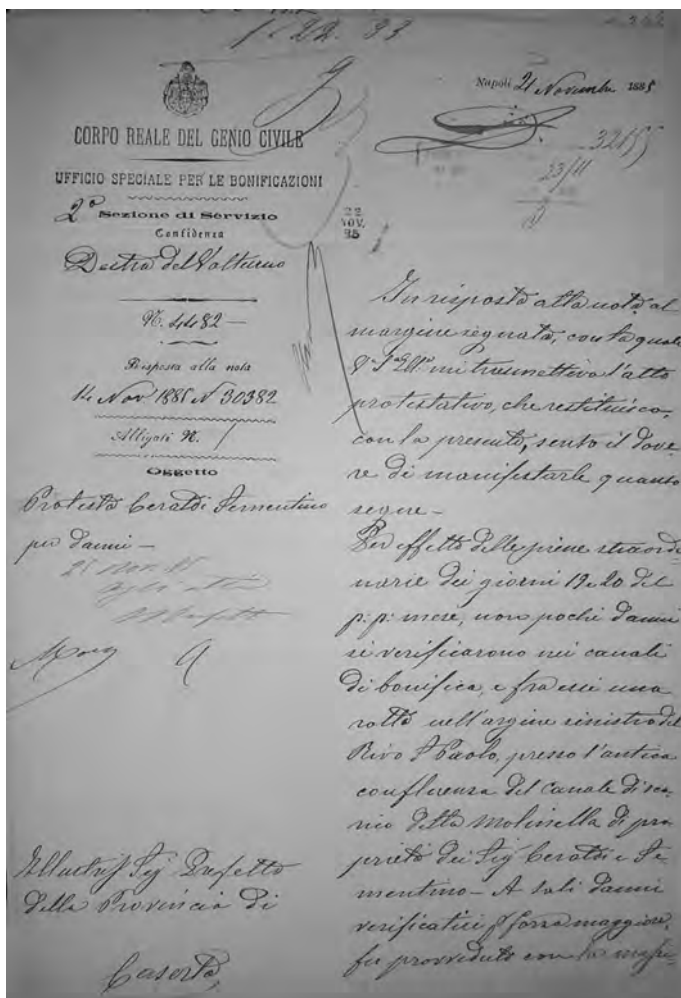 1. 22. 83
Napoli 21 Novembre 1885
CORPO REALE DEL GENIO CIVILE
UFFICIO SPECIALE PER LE BONIFICAZIONI
2ª Sezione di Servizio
Confidenza
Destra del Volturno
N. 4482 —
Risposta alla nota
14 Nov 1885 N 30382
Alligati N. /
Oggetto
Protesta Ceraldi Sementino
per danni —
25 Nov. 85
Illustriss Sig Prefetto
della Provincia di
Caserta,
32155
23/11
22
NOV.
85
In risposta alla nota al
margine segnata, con la quale
V. S. Ill. mi trasmettiva l'atto
protestativo, che restituisco
con la presente, sento il dove-
re di manifestarle quanto
segue —
Per effetto delle piene straordi-
narie dei giorni 19 e 20 del
p. p. mese, non pochi danni
si verificarono nei canali
di bonifica, e fra essi una
rotta nell'argine sinistro del
Rivo S Paolo, presso l'antica
confluenza del canale di sca-
rico della Molinella di pro-
prietà dei Sig Ceraldi e Se-
mentino — A tali danni
verificatisi p forza maggiore,
fu provveduto con la massi-